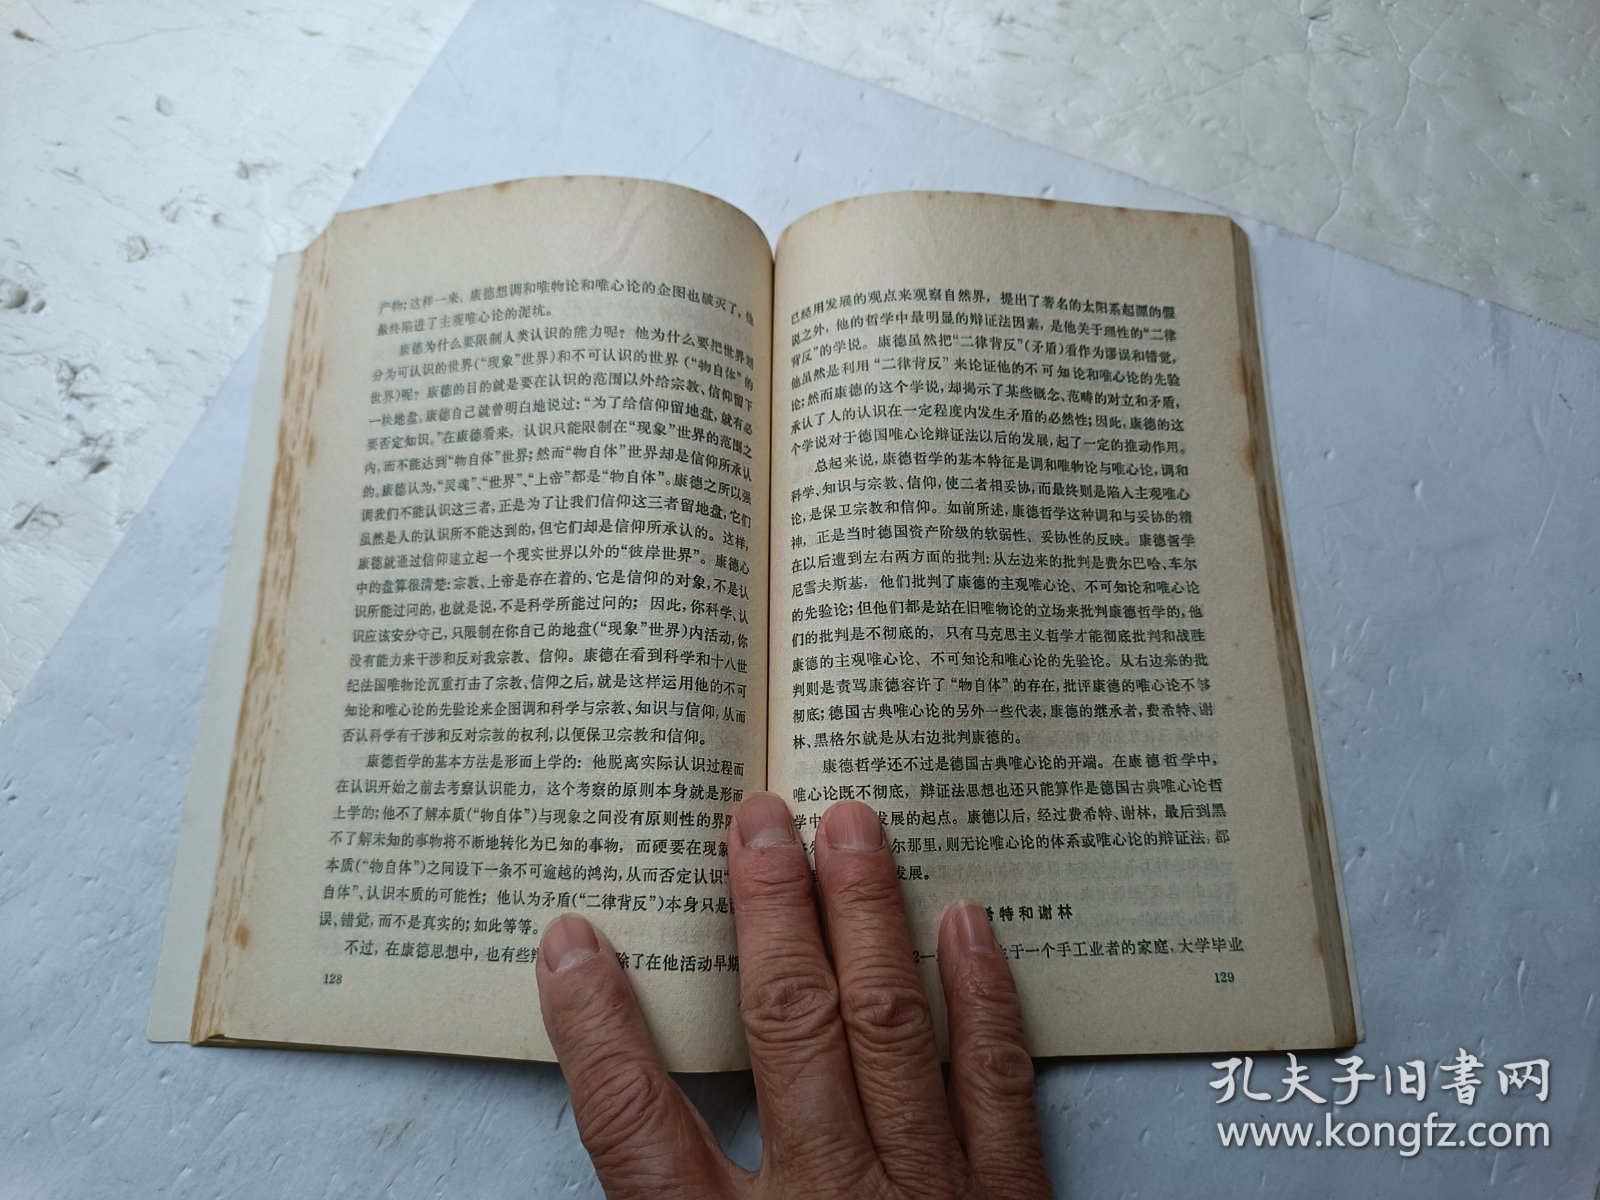 产物；这样一来，康德想调和唯物论和唯心论的企图也破灭了，他
最终陷进了主观唯心论的泥坑。
康德为什么要限制人类认识的能力呢？他为什么要把世界划
分为可认识的世界（“现象”世界）和不可认识的世界（“物自体”的
世界）呢？康德的目的就是要在认识的范围以外给宗教、信仰留下
一块地盘。康德自己就曾明白地说过：“为了给信仰留地盘，就有必
要否定知识。”在康德看来，认识只能限制在“现象”世界的范围之
内，而不能达到“物自体”世界；然而“物自体”世界却是信仰所承认
的。康德认为，“灵魂”、“世界”、“上帝”都是“物自体”。康德之所以强
调我们不能认识这三者，正是为了让我们信仰这三者留地盘，它们
虽然是人的认识所不能达到的，但它们却是信仰所承认的。这样，
康德就通过信仰建立起一个现实世界以外的“彼岸世界”。康德心
中的盘算很清楚：宗教、上帝是存在着的、它是信仰的对象，不是认
识所能过问的，也就是说，不是科学所能过问的；因此，你科学、认
识应该安分守己，只限制在你自己的地盘（“现象”世界）内活动，你
没有能力来干涉和反对我宗教、信仰。康德在看到科学和十八世
纪法国唯物论沉重打击了宗教、信仰之后，就是这样运用他的不可
知论和唯心论的先验论来企图调和科学与宗教、知识与信仰，从而
否认科学有干涉和反对宗教的权利，以便保卫宗教和信仰。
康德哲学的基本方法是形而上学的：他脱离实际认识过程而
在认识开始之前去考察认识能力，这个考察的原则本身就是形而
上学的；他不了解本质（“物自体”）与现象之间没有原则性的界限
不了解未知的事物将不断地转化为已知的事物，而硬要在现象
本质（“物自体”）之间设下一条不可逾越的鸿沟，从而否定认识“
自体”、认识本质的可能性；他认为矛盾（“二律背反”）本身只是
误、错觉，而不是真实的；如此等等。
不过，在康德思想中，也有些 除了在他活动早期
128
已经用发展的观点来观察自然界，提出了著名的太阳系起源的假
说之外，他的哲学中最明显的辩证法因素，是他关于理性的“二律
背反”的学说。康德虽然把“二律背反”（矛盾）看作为谬误和错觉，
他虽然是利用“二律背反”来论证他的不可知论和唯心论的先验
论；然而康德的这个学说，却揭示了某些概念、范畴的对立和矛盾，
承认了人的认识在一定程度内发生矛盾的必然性；因此，康德的这
个学说对于德国唯心论辩证法以后的发展，起了一定的推动作用。
总起来说，康德哲学的基本特征是调和唯物论与唯心论，调和
科学、知识与宗教、信仰，使二者相妥协，而最终则是陷入主观唯心
论，是保卫宗教和信仰。如前所述，康德哲学这种调和与妥协的精
神，正是当时德国资产阶级的软弱性、妥协性的反映。康德哲学
在以后遭到左右两方面的批判：从左边来的批判是费尔巴哈、车尔
尼雪夫斯基，他们批判了康德的主观唯心论、不可知论和唯心论
的先验论；但他们都是站在旧唯物论的立场来批判康德哲学的，他
们的批判是不彻底的，只有马克思主义哲学才能彻底批判和战胜
康德的主观唯心论、不可知论和唯心论的先验论。从右边来的批
判则是责骂康德容许了“物自体”的存在，批评康德的唯心论不够
彻底；德国古典唯心论的另外一些代表，康德的继承者，费希特、谢
林、黑格尔就是从右边批判康德的。
康德哲学还不过是德国古典唯心论的开端。在康德哲学中，
唯心论既不彻底，辩证法思想也还只能算作是德国古典唯心论哲
学中 发展的起点。康德以后，经过费希特、谢林，最后到黑
尔那里，则无论唯心论的体系或唯心论的辩证法，都
发展。
希特和谢林
2— 生于一个手工业者的家庭，大学毕业
129
孔夫子旧书网
www.kongfz.com